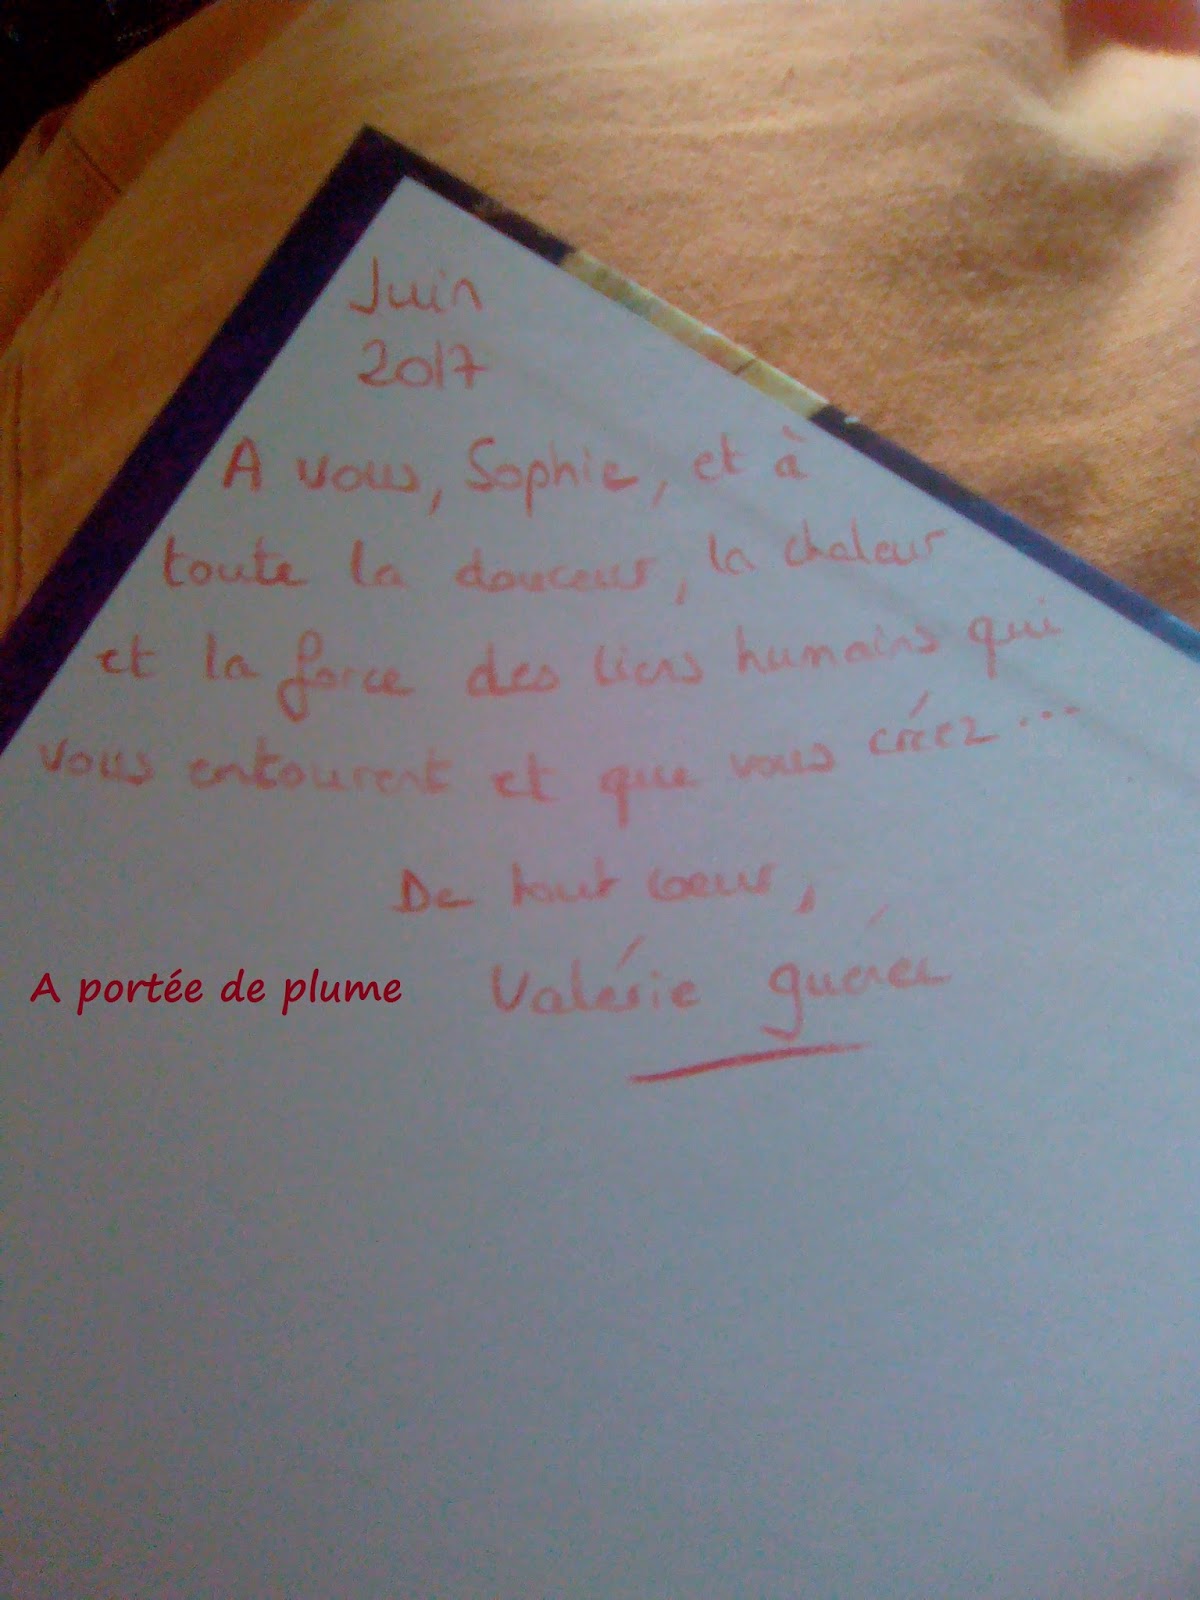 Juin
2017
A vous, Sophie, et à
toute la douceur, la chaleur
et la force des liens humains qui
vous entourent et que vous créez...
De tout coeur,
A portée de plume
Valérie